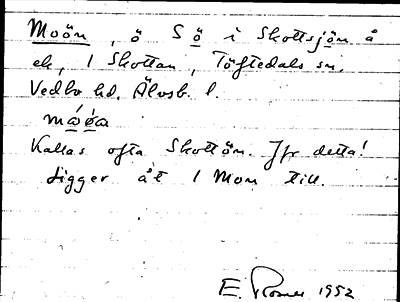 Moön, ö S ö i Skottsjön å
ek, 1 Skottan, Töftedals sn.
Vedbo hd. Älvsb. l.
Kallas ofta Skottön. Jfr detta!
Ligger åt 1 Mon till.
E. Romer 1952